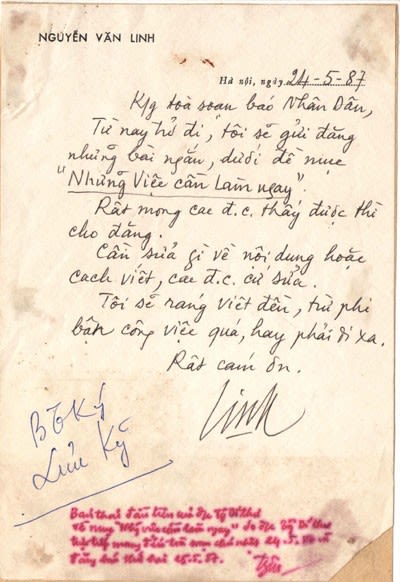 NGUYỄN VĂN LINH
Hà nội, ngày 24-5-87
K/g toà soạn báo Nhân Dân,
Từ nay trở đi, tôi sẽ gửi đăng
những bài ngắn, dưới đề mục
"Những Việc cần làm ngay".
Rất mong các đ.c. thấy được thì
cho đăng.
Cần sửa gì về nội dung hoặc
cách viết, các đ.c. cứ sửa.
Tôi sẽ ráng viết đều, trừ phi
bận công việc quá, hay phải đi xa.
Rất cám ơn.
Linh
Lưu Kỹ
Bản thảo đầu tiên của đ/c Tổng Bí thư